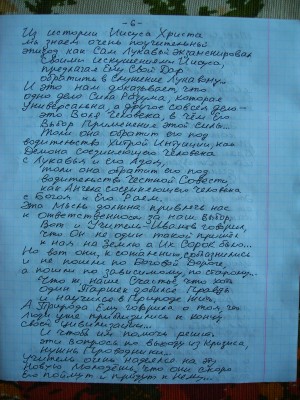 -6-
Из истории Иисуса Христа
Мы знаем очень поучительный
эпизод как Сам Лукавый экзаменировал
Своими искушениями Иисуса,
предлагая Ему Свой Дар
обратить в служение Лукавому...
И это нам доказывает, что
одно дело Сила Разума, которая
Универсальна, а другое совсем дело-
это Воля Человека, в чём Его
Выбор Применение этой Силы...
Толи она обратит его под
водительства Хитрой Интуиции, как
Демона Соединяющего Человека
с Лукавым и Его Адом,
толи она обратит его под
водительства Честной Совести,
как Ангела соединяющего Человека
с Богом и Его Раем.
Эта Мысль должна привлечь нас
к ответственности за наш выбор.
Вот и Учитель Иванов говорил,
что Он не один такой пришёл
к нам на Землю а Их Сорок было...
Но вот они, к сожалению соблазнились
не пошли по Богово Дороге,
а пошли по зависимому, по старому...
Что ж, наше Счастье, что хоть
один Паршек добился Правды
и научился в Природе Жить.
А Природа Ему говорила о том, что
Люди уже приблизились к концу
своей Цивилизации...
И чтобы им помочь решить
эти вопросы по выходу из кризиса,
нужны Проводники...
Учитель очень надеялся на
Новую Молодёжь, что они скоро
Его поймут и придут к Нему...